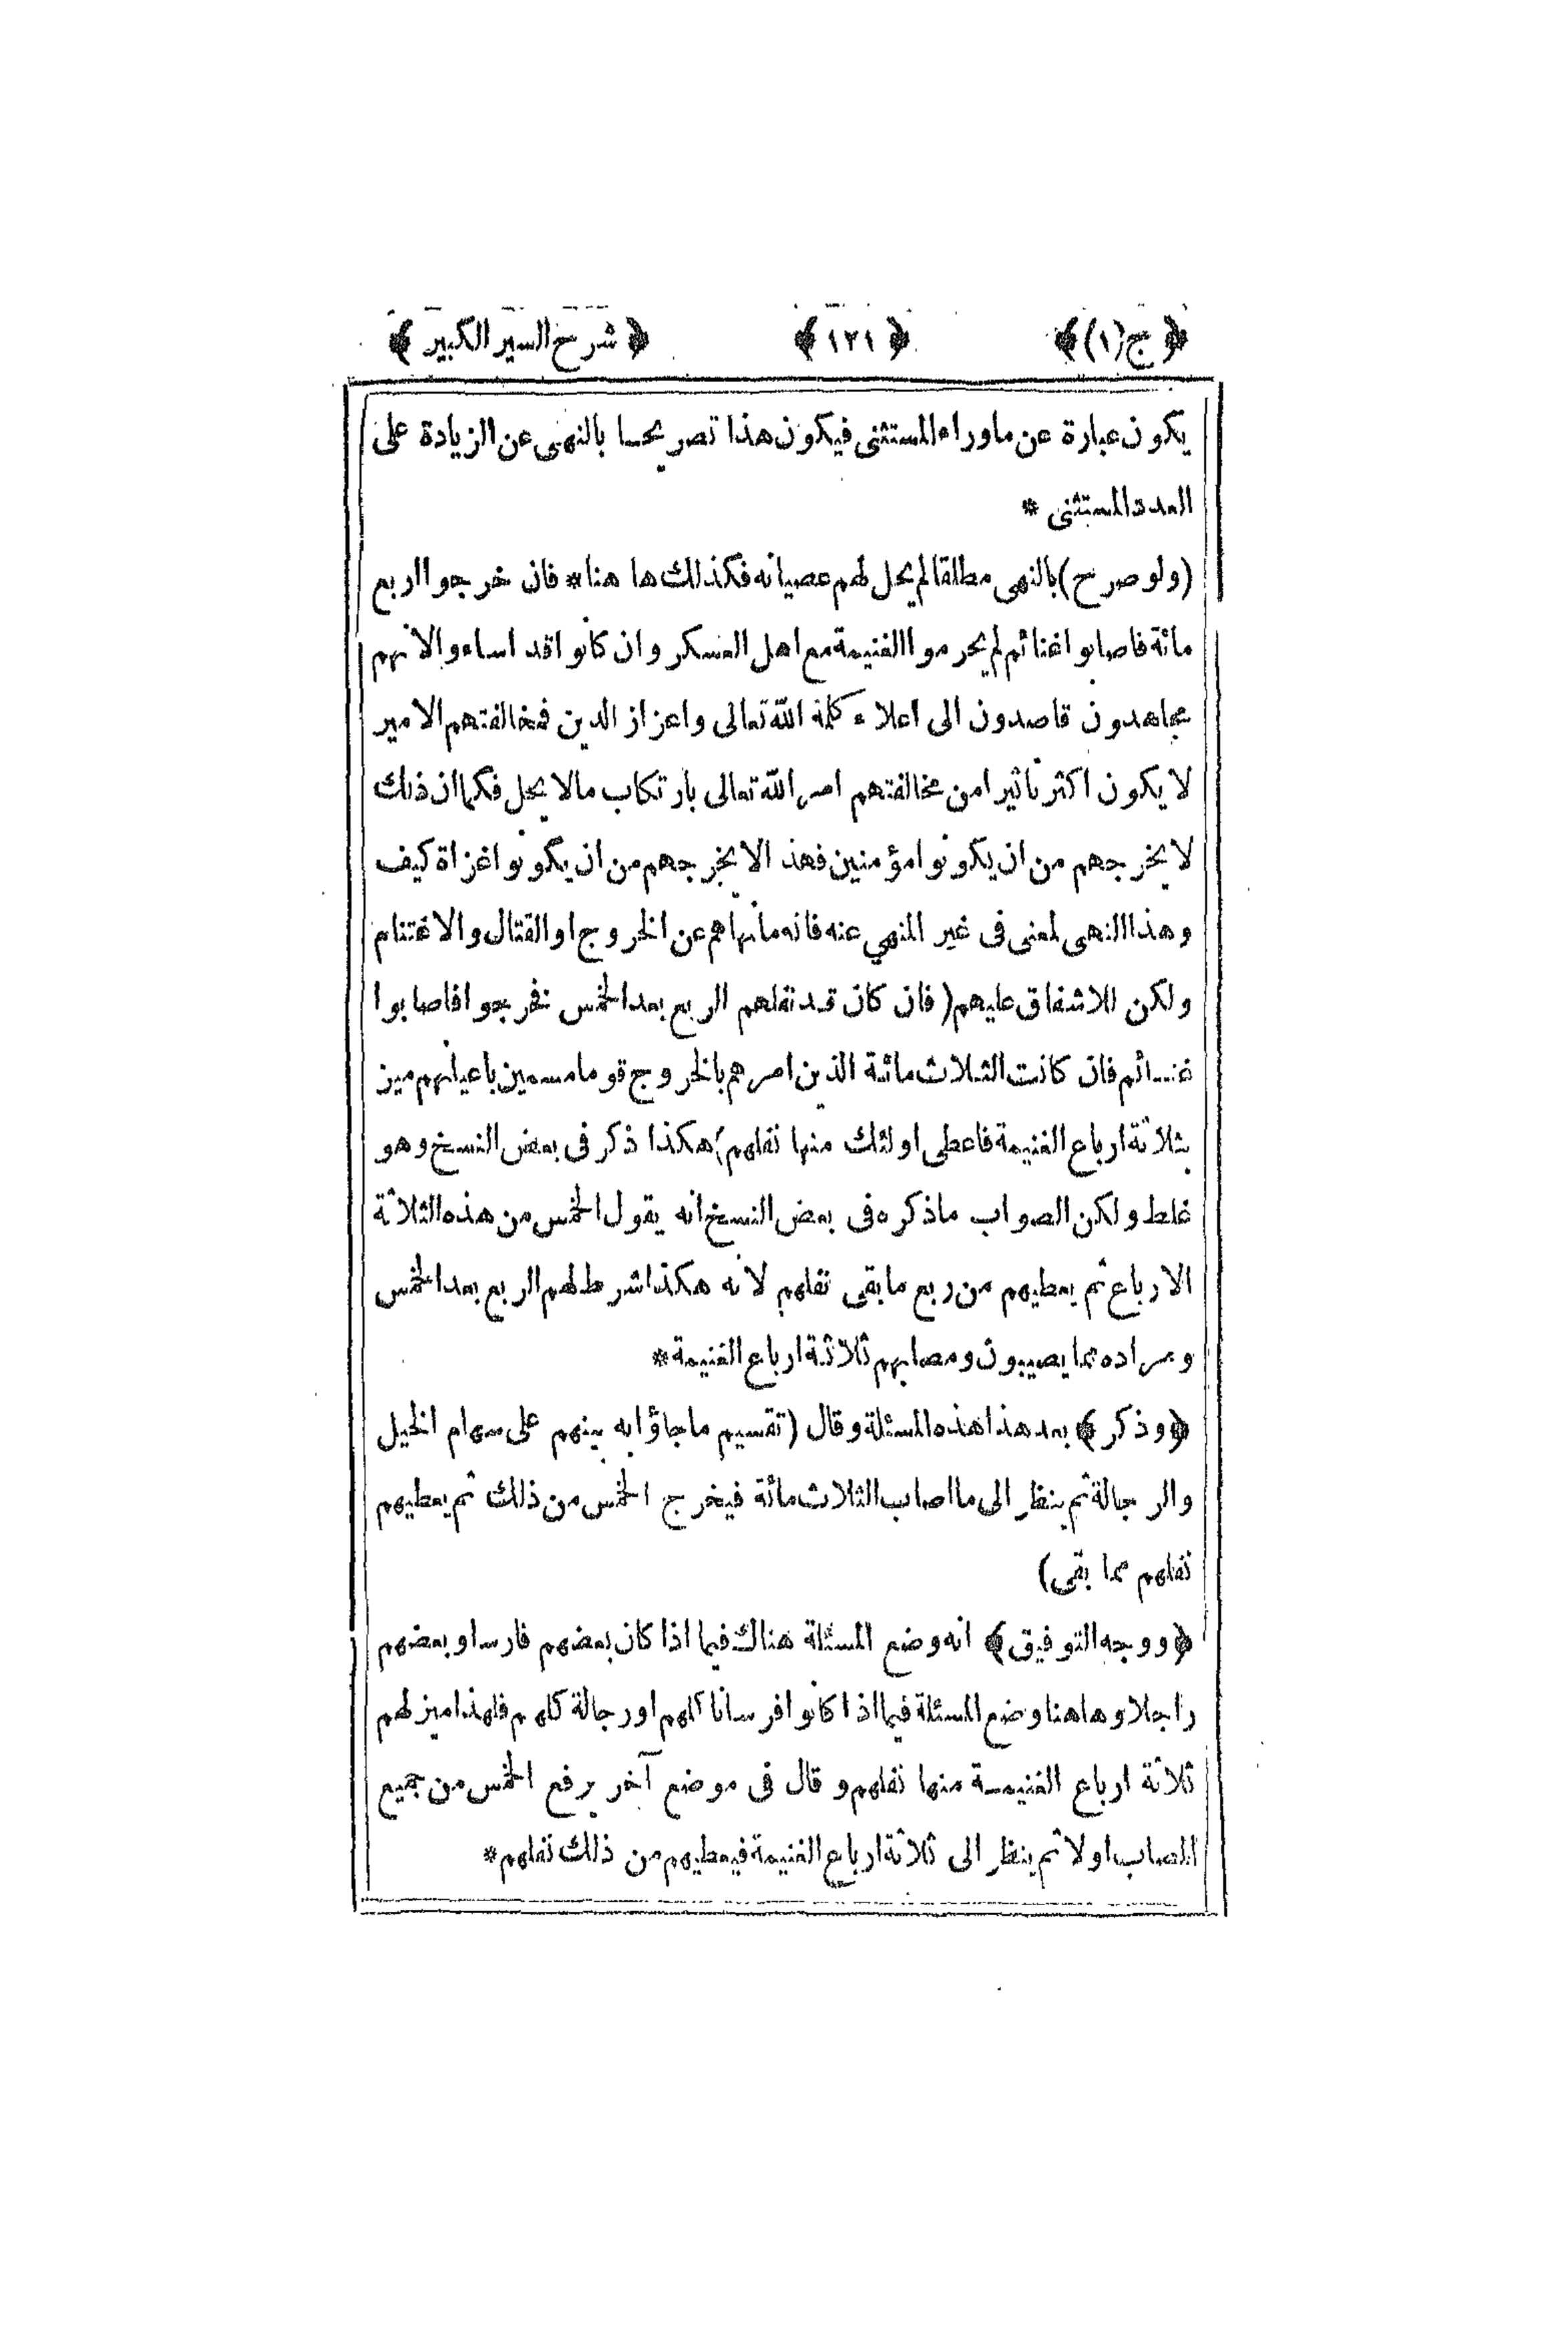 ﴿ ج (١) ﴾ ﴿ ١٢١ ﴾ ﴿ شرح السير الكبير ﴾
يكون عبارة عن ما وراء المستثنى فيكون هذا تصريحا بالنهى عن الزيادة على
العدد المستثنى *
(ولو صرح) بالنهى مطلقا لم يحل لهم عصيانه فكذلك ها هنا * فان خرجوا اربع
مائة فاصابوا غنائم لم يحرموا الغنيمة مع اهل العسكر وان كانوا قد اساءوا لانهم
مجاهدون قاصدون الى اعلاء كلمة الله تعالى واعزاز الدين فمخالفتهم الامير
لا يكون اكثر تأثيرا من مخالفتهم امر الله تعالى بارتكاب مالا يحل فكما ان ذلك
لا يخرجهم من ان يكونوا مؤمنين فهذا لا يخرجهم من ان يكونوا غزاة كيف
وهذا النهى لمعنى فى غير المنهي عنه فانه ما نهاهم عن الخروج او القتال والاغتنام
ولكن للاشفاق عليهم ( فان كان قد نفلهم الربع بعد الخمس فخرجوا فاصابوا
غنائم فان كانت الثلاث مائة الذين امرهم بالخروج قوما مسمين باعيانهم ميز
ثلاثة ارباع الغنيمة فاعطى اولئك منها نفلهم) هكذا ذكر فى بعض النسخ وهو
غلط ولكن الصواب ما ذكره فى بعض النسخ انه يقول الخمس من هذه الثلاثة
الارباع ثم يعطيهم من ربع ما بقى نفلهم لانه هكذا شرط لهم الربع بعد الخمس
ومراده مما يصيبون ومصابهم ثلاثة ارباع الغنيمة *
﴿ وذكر ﴾ بعد هذا هذه المسئلة وقال ( تقسيم ما جاؤا به بينهم على سهام الخيل
والرجالة ثم ينظر الى ما اصاب الثلاث مائة فيخرج الخمس من ذلك ثم يعطيهم
نفلهم مما بقى )
﴿ ووجه التوفيق ﴾ انه وضع المسئلة هناك فيما اذا كان بعضهم فارسا وبعضهم
راجلا وها هنا وضع المسئلة فيما اذا كانوا فرسانا كلهم او رجالة كلهم فلهذا ميز لهم
ثلاثة ارباع الغنيمة منها نفلهم وقال فى موضع آخر يرفع الخمس من جميع
المصاب اولا ثم ينظر الى ثلاثة ارباع الغنيمة فيعطيهم من ذلك نفلهم *